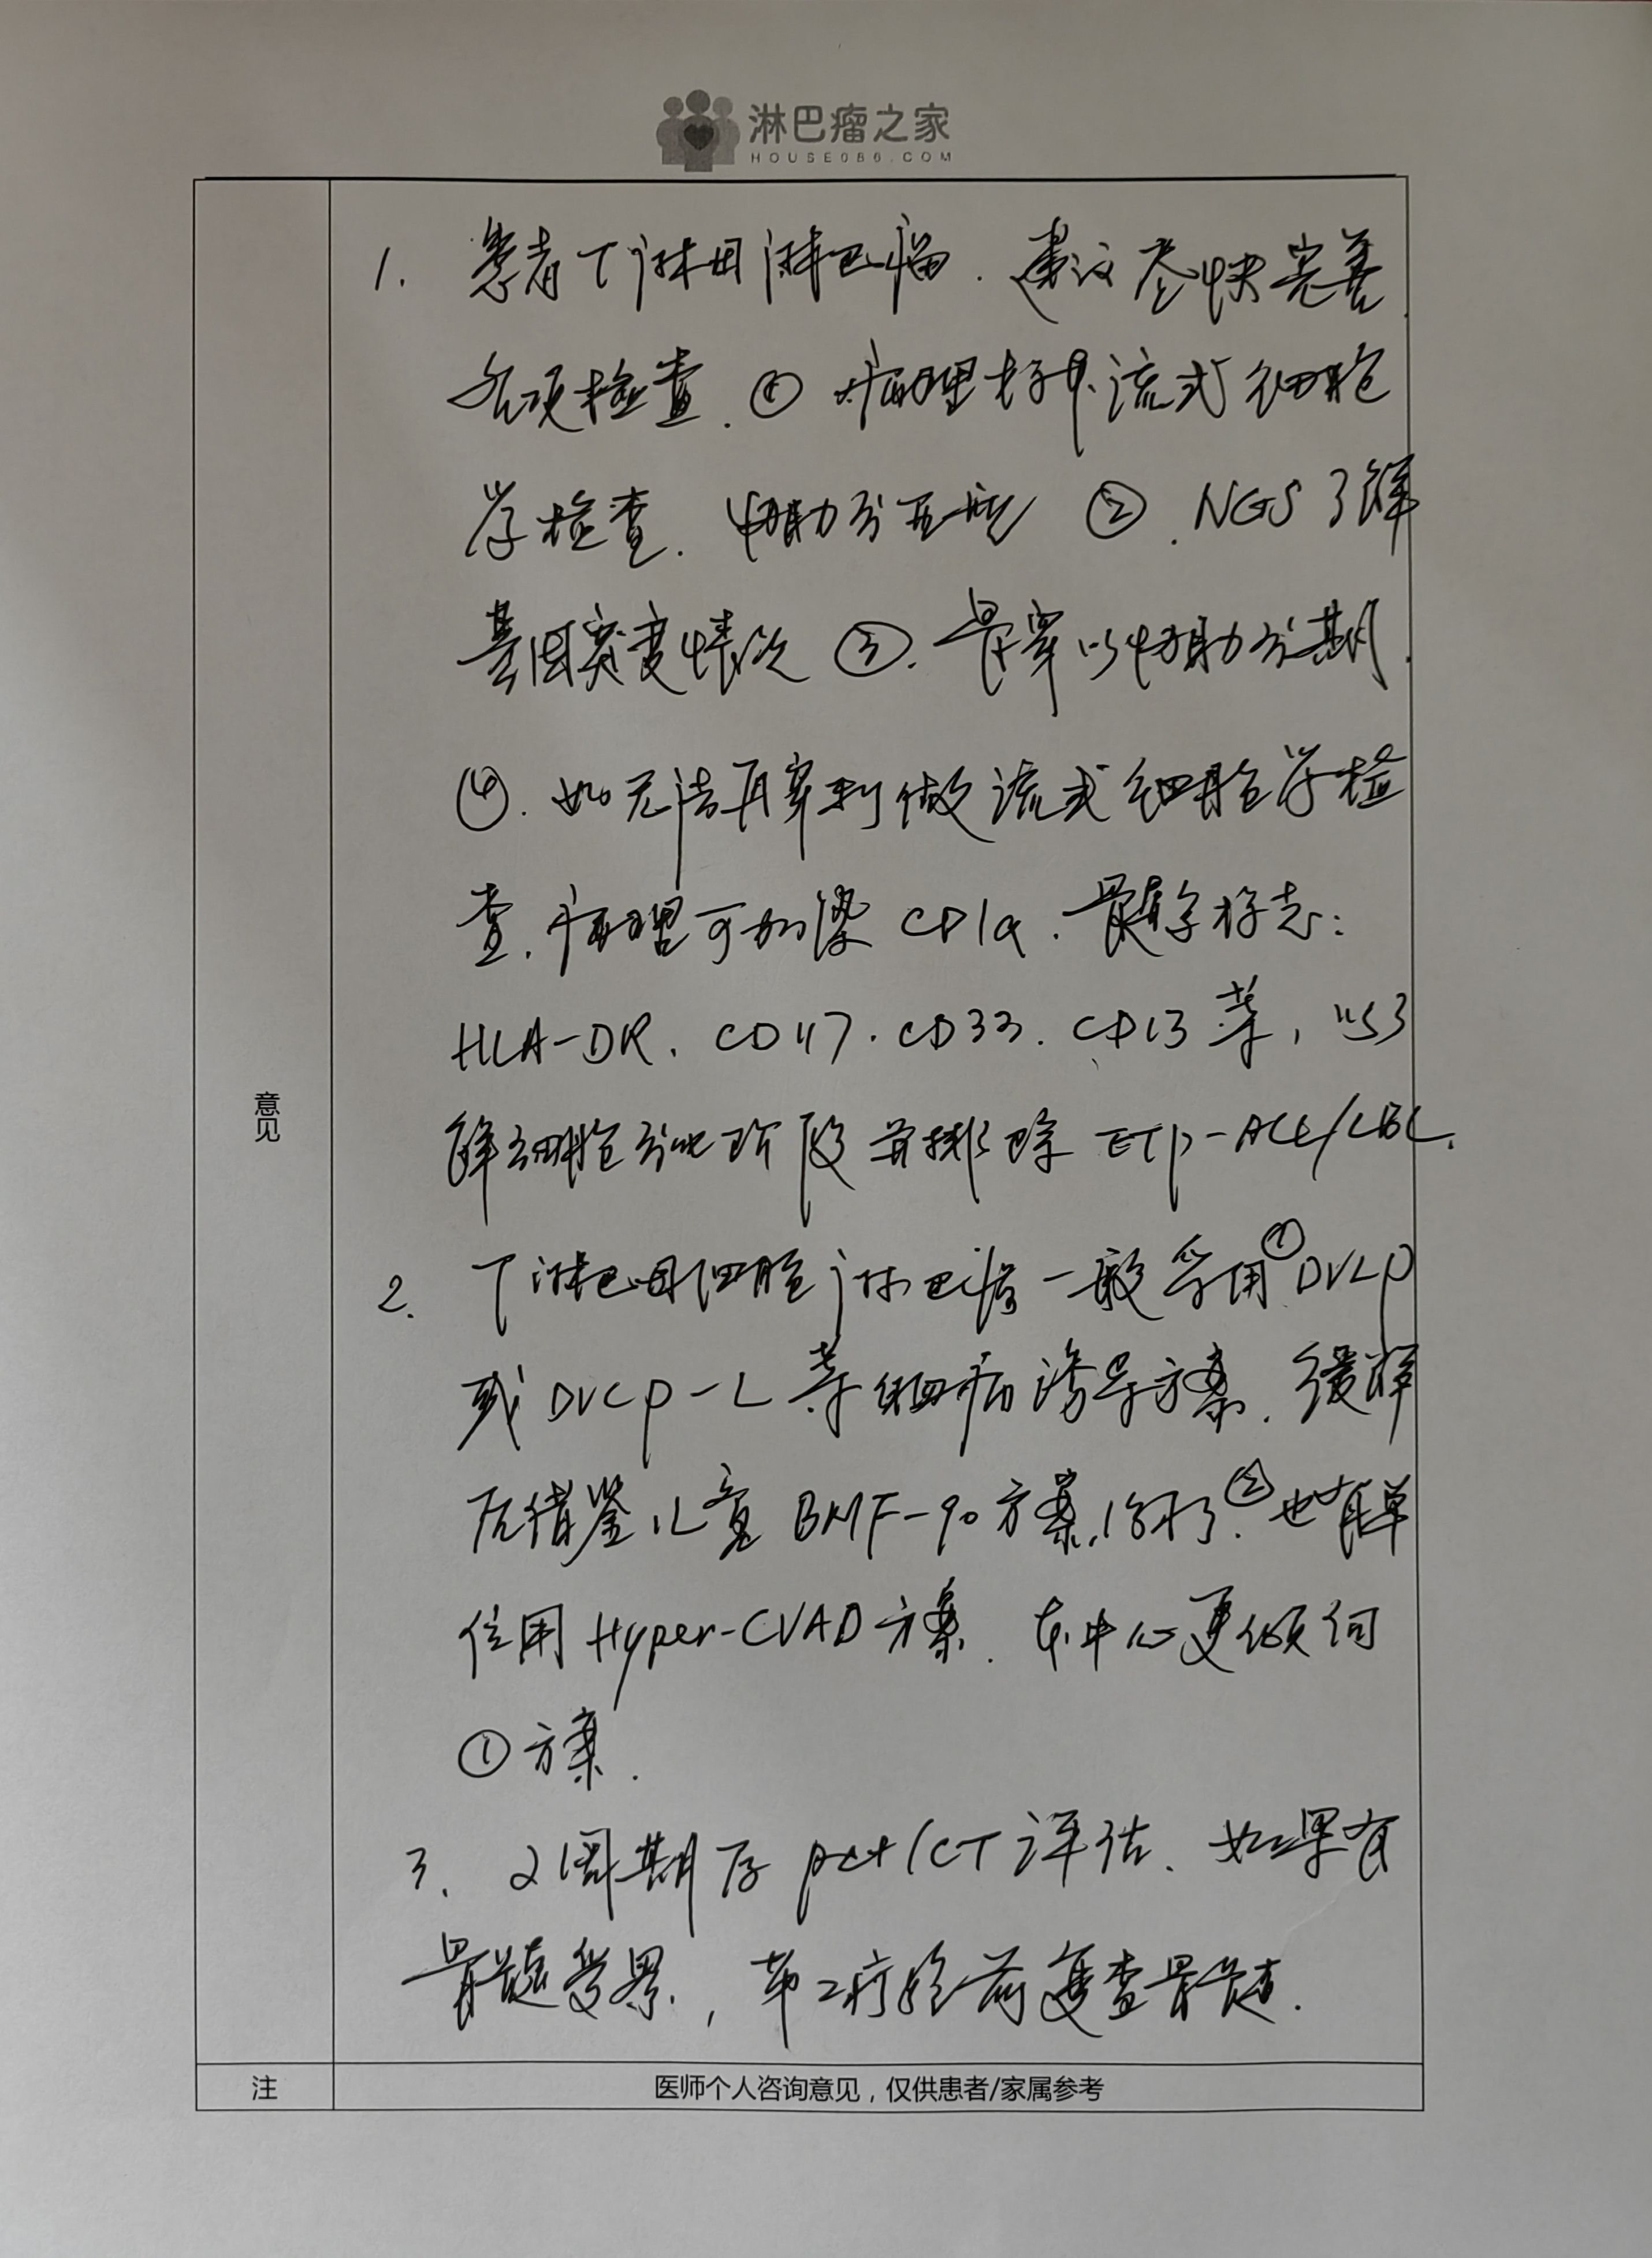 淋巴瘤之家
HOUSE086.COM
1. 患者T淋母淋巴瘤. 建议尽快完善
各项检查. ① 病理标本流式细胞
学检查. 辅助分亚型 ②. NGS了解
基因突变情况 ③. 骨穿以辅助分期.
④. 如无法再穿刺做流式细胞学检
查. 病理可加染CD1a. 髓系标志:
HLA-DR. CD117. CD33. CD13等, 以了
解细胞分化阶段并排除ETP-ALL/LBL.
意见
2. T淋巴母细胞淋巴瘤一般采用①DVLP
或DVCP-L等细病诱导方案. 缓解
后借鉴儿童BMF-90方案治疗. ②也有单
位用Hyper-CVAD方案. 本中心更倾向
①方案.
3. 2周期后pet/CT评估. 如果有
骨髓受累, 第二疗程前复查骨髓.
注
医师个人咨询意见，仅供患者/家属参考